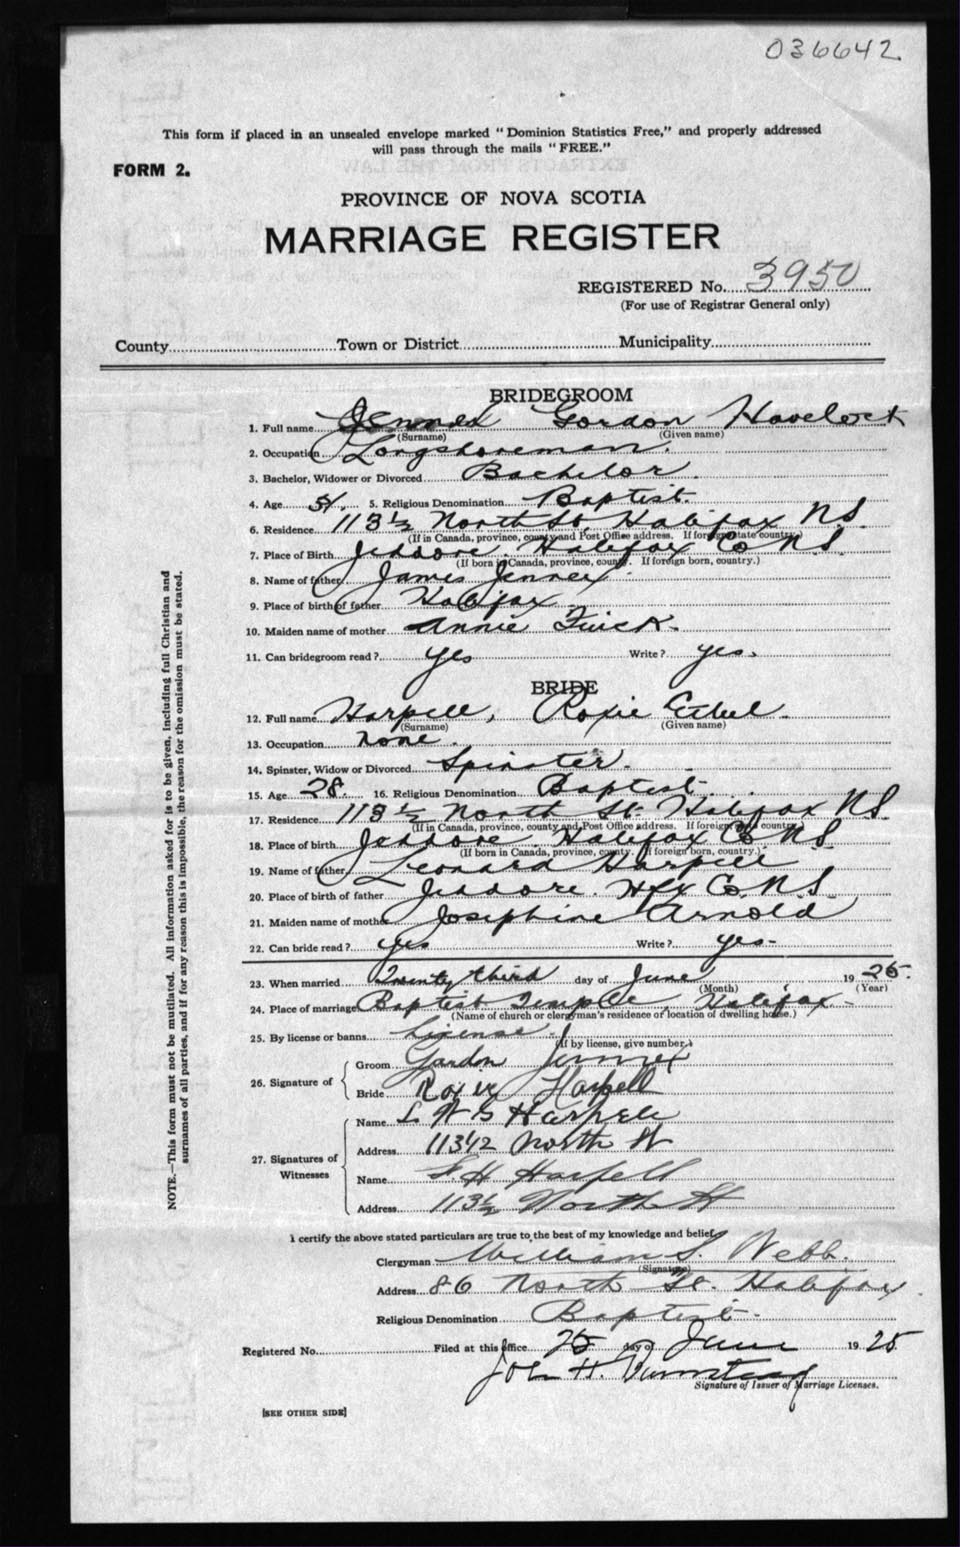 036642
This form if placed in an unsealed envelope marked "Dominion Statistics Free," and properly addressed
will pass through the mails "FREE."
FORM 2.
PROVINCE OF NOVA SCOTIA
MARRIAGE REGISTER
REGISTERED No. 3950
(For use of Registrar General only)
County Town or District Municipality
BRIDEGROOM
1. Full name Jennex Gordon Havelock
(Surname) (Given name)
2. Occupation Longshoreman.
3. Bachelor, Widower or Divorced Bachelor
4. Age 5. Religious Denomination Baptist.
6. Residence 113½ North St. Halifax NS.
(If in Canada, province, county and Post Office address. If foreign state country.)
7. Place of Birth Jeddore. Halifax Co NS.
(If born in Canada, province, county. If foreign born, country.)
8. Name of father James Jennex
9. Place of birth of father Halifax
10. Maiden name of mother Annie
11. Can bridegroom read? yes Write? yes.
BRIDE
12. Full name Harpell, Roxie Ethel.
(Surname) (Given name)
13. Occupation none.
14. Spinster, Widow or Divorced Spinster.
15. Age 28. 16. Religious Denomination Baptist.
17. Residence 113½ North St. Halifax NS.
(If in Canada, province, county and Post Office address. If foreign country)
18. Place of birth Jeddore Halifax Co NS.
(If born in Canada, province, county. If foreign born, country.)
19. Name of father Leonard Harpell
20. Place of birth of father Jeddore. Hfx Co. N.S.
21. Maiden name of mother Josephine Arnold
22. Can bride read? yes Write? yes-
23. When married Twenty third day of June 1925.
(Month) (Year)
24. Place of marriage Baptist Temple, Halifax-
(Name of church or clergyman's residence or location of dwelling house.)
25. By license or banns License.
(If by license, give number.)
26. Signature of
Groom Gordon Jennex
Bride Roxie Harpell
27. Signatures of Witnesses
Name L W G Harpell
Address 113½ North St
Name S. H Harpell
Address 113½ North St
I certify the above stated particulars are true to the best of my knowledge and belief.
Clergyman William S. Webb.
(Signature)
Address 86 North St. Halifax.
Religious Denomination Baptist.
Registered No. Filed at this office 25 day of June 1925
John H.
Signature of Issuer of Marriage Licenses.
[SEE OTHER SIDE]
NOTE.—This form must not be mutilated. All information asked for is to be given, including full Christian and
surnames of all parties, and if for any reason this is impossible, the reason for the omission must be stated.